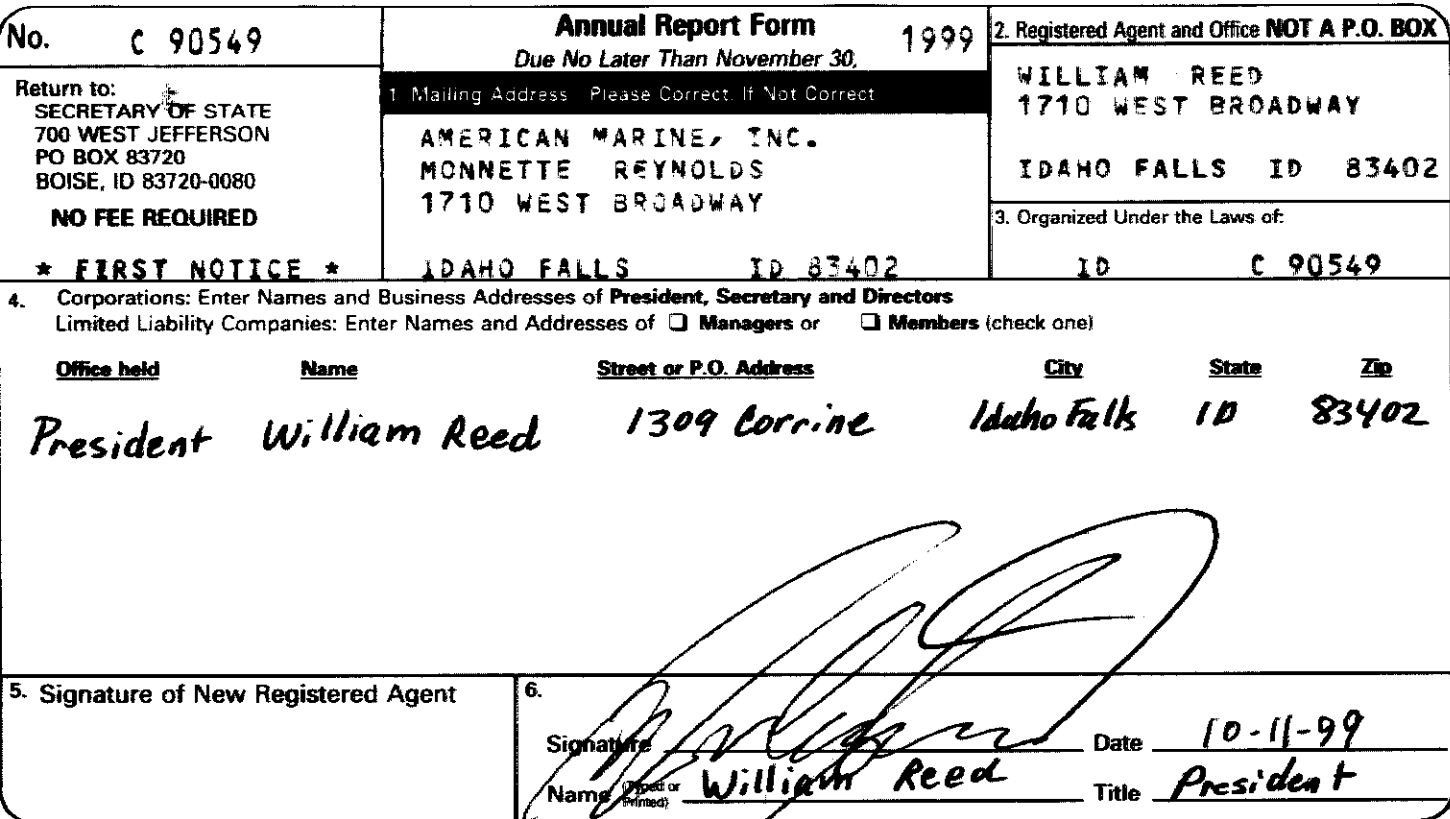 No. C 90549
Return to:
SECRETARY OF STATE
700 WEST JEFFERSON
PO BOX 83720
BOISE, ID 83720-0080
NO FEE REQUIRED
* FIRST NOTICE *
Annual Report Form 1999
Due No Later Than November 30,
1 Mailing Address Please Correct, If Not Correct
AMERICAN MARINE, INC.
MONNETTE REYNOLDS
1710 WEST BROADWAY
IDAHO FALLS ID 83402
2. Registered Agent and Office NOT A P.O. BOX
WILLIAM REED
1710 WEST BROADWAY
IDAHO FALLS ID 83402
3. Organized Under the Laws of:
ID C 90549
4. Corporations: Enter Names and Business Addresses of President, Secretary and Directors
Limited Liability Companies: Enter Names and Addresses of ❏ Managers or ❏ Members (check one)
Office held Name Street or P.O. Address City State Zip
President William Reed 1309 Corrine Idaho Falls ID 83402
5. Signature of New Registered Agent
6.
Signature Date 10-11-99
Name (Typed or Printed) William Reed Title President